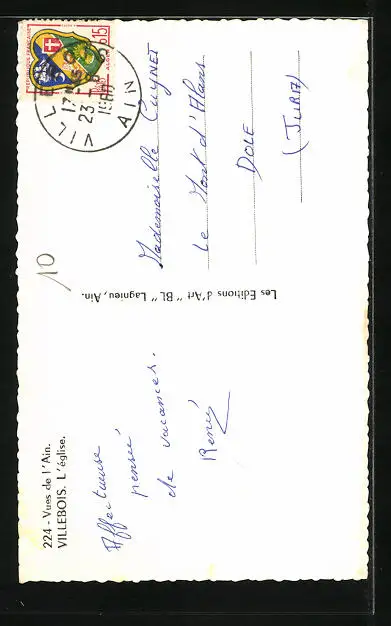 224 - Vues de l'Ain.
VILLEBOIS. L'église.
Affectueuse
pensée
de vacances.
René
Les Editions d'Art "BL" Lagnieu, Ain.
10
REPUBLIQUE FRANÇAISE
0,15
ALGER
VILL
17
23
AIN
Mademoiselle Cuynet
Le Mont d'Alans
DOLE
(JURA)